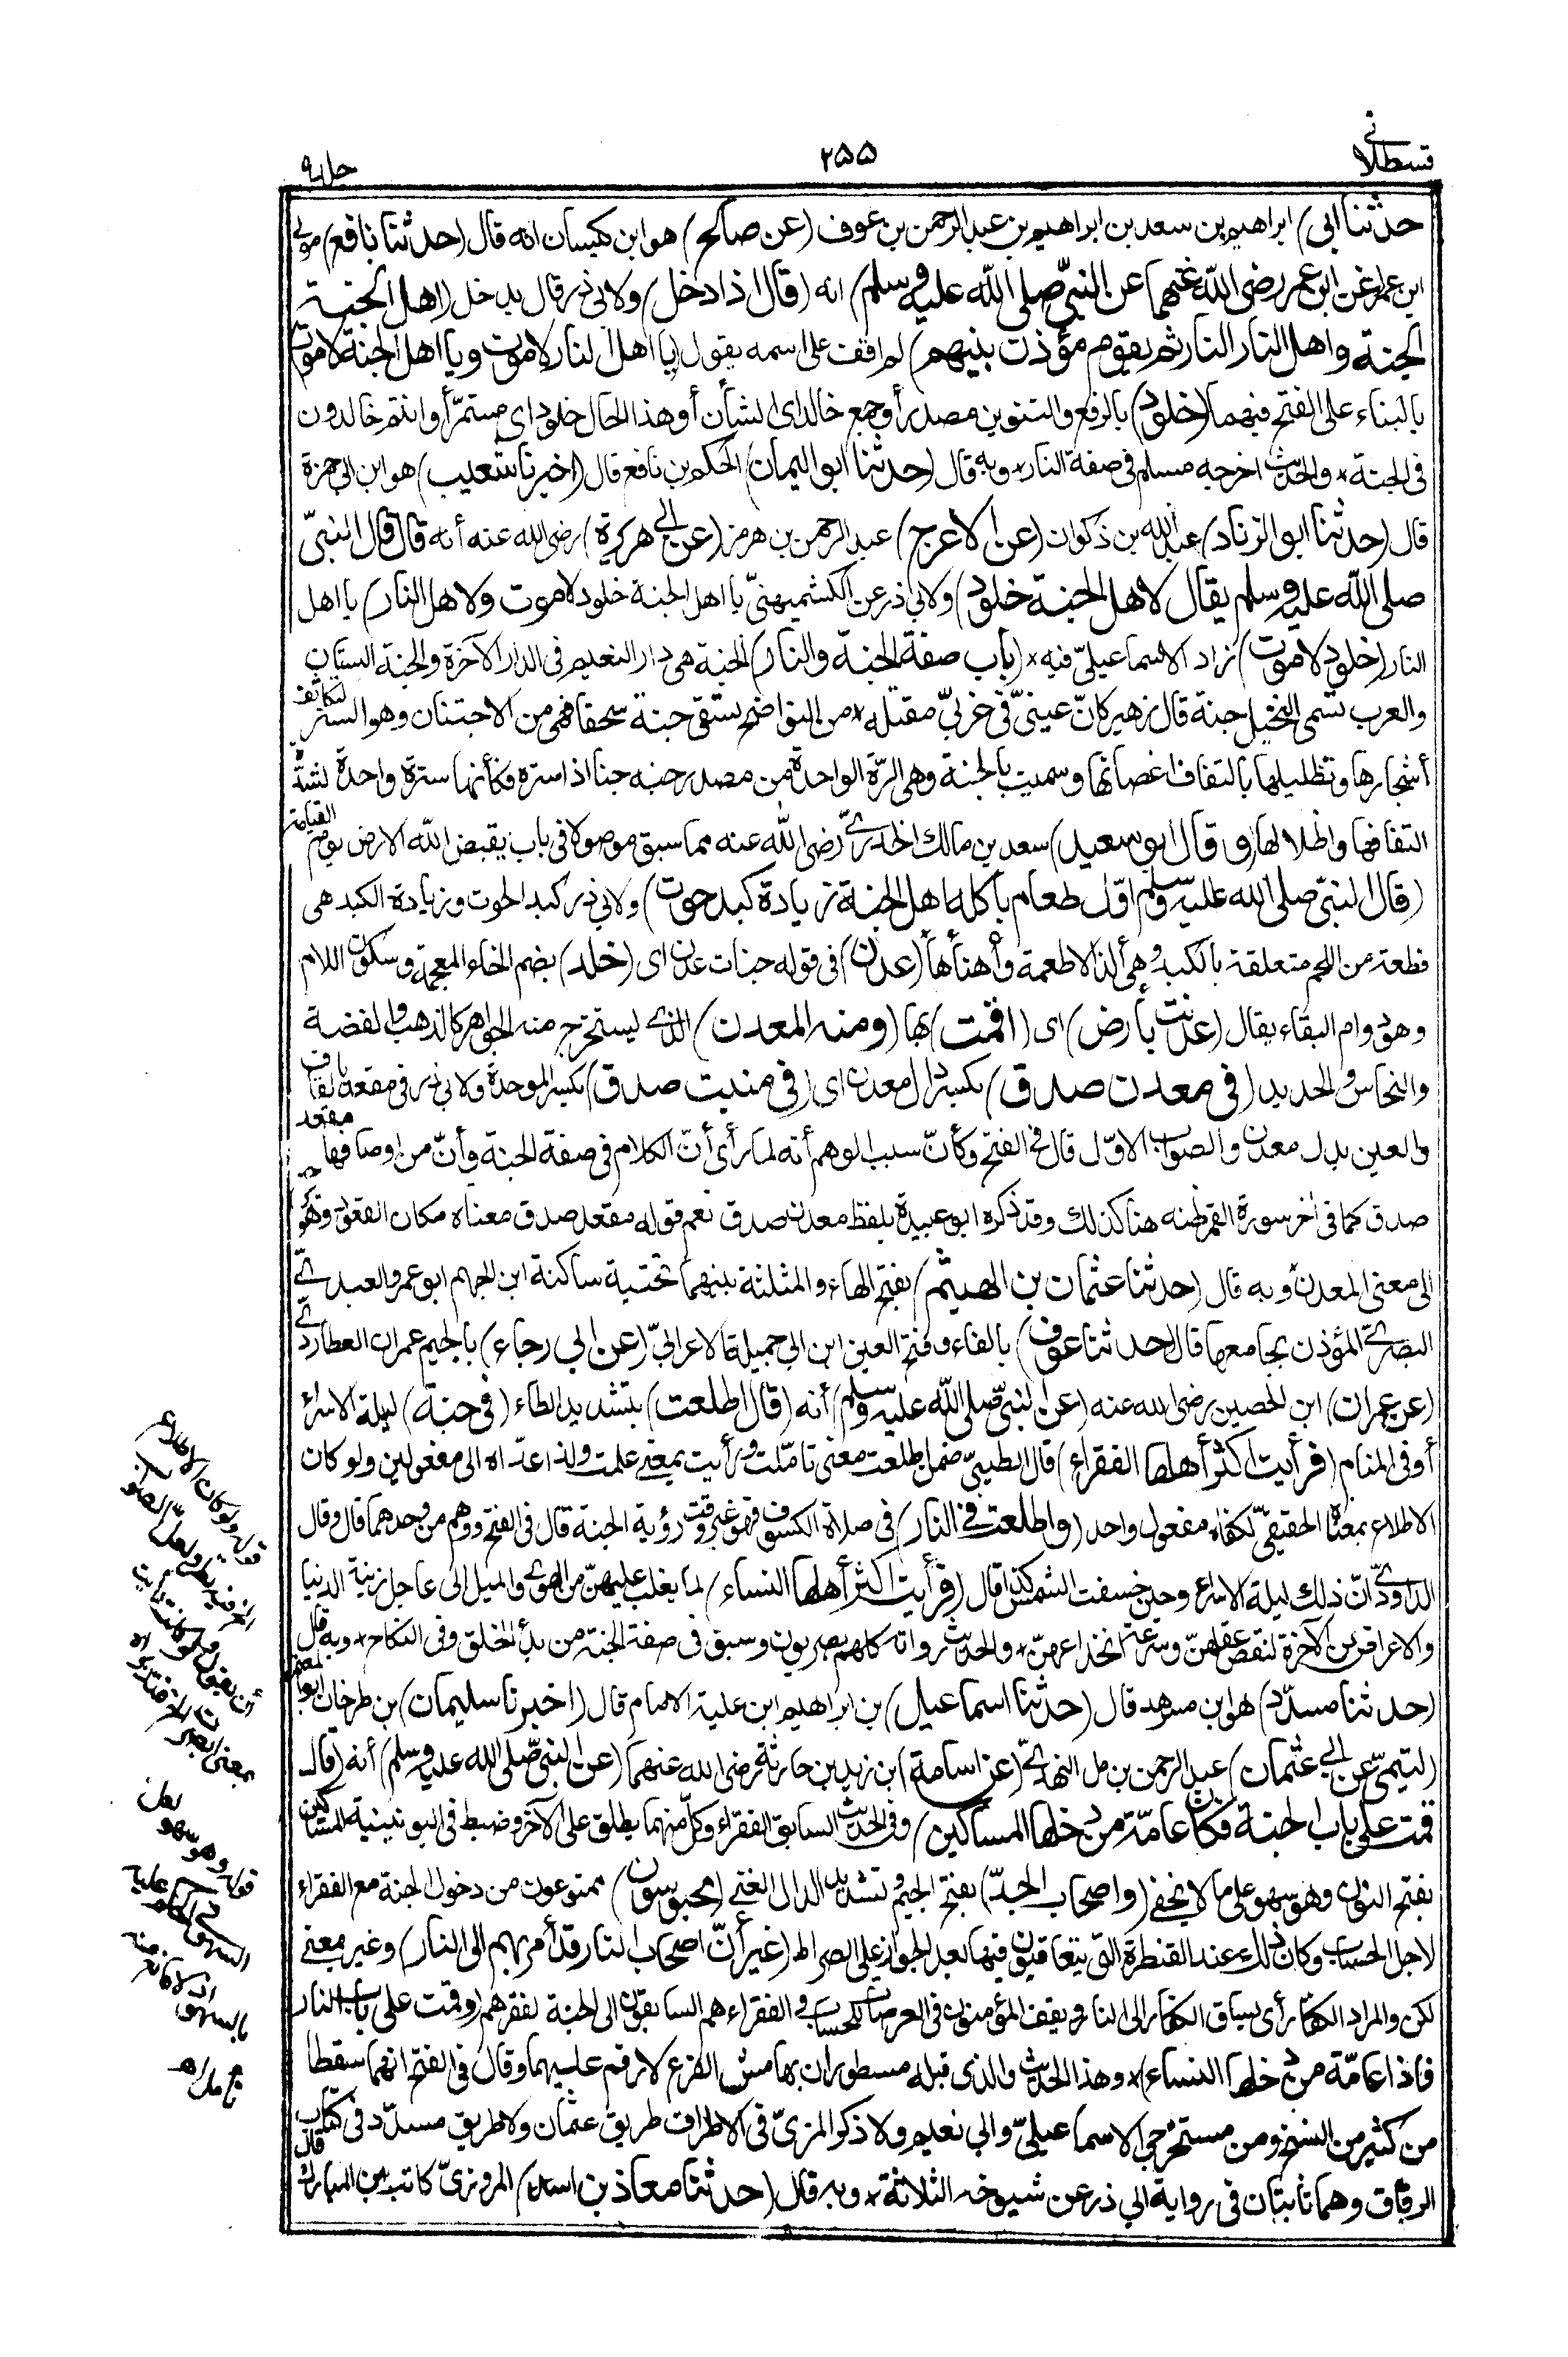 قسطلانى
٢٥٥
جلد ٩
حدثنا أبى) ابراهيم بن سعد بن ابراهيم بن عبد الرحمن بن عوف (عن صالح) هو ابن كيسان انه قال (حدثنا نافع) مولى
ابن عمر (عن ابن عمر رضى الله عنهما عن النبىّ صلى الله عليه وسلم) انه (قال اذا دخل) ولابى ذر قال يدخل (اهل الجنة
الجنة واهل النار النار ثم يقوم مؤذن بينهم) لم اقف على اسمه يقول (يا اهل النار لا موت ويا اهل الجنة لا موت)
بالبناء على الفتح فيهما (خلود) بالرفع والتنوين مصدر أو جمع خالد اى الشأن أو هذا الحال خلود اى مستمرّ أو انتم خالدون
فى الجنة * والحديث اخرجه مسلم فى صفة النار * وبه قال (حدثنا ابو اليمان) الحكم بن نافع قال (اخبرنا شعيب) هو ابن ابى حمزة
قال (حدثنا ابو الزناد) عبد الله بن ذكوان (عن الاعرج) عبد الرحمن بن هرمز (عن ابى هريرة) رضى الله عنه أنه قال قال النبىّ
صلى الله عليه وسلم يقال لاهل الجنة خلود) ولابى ذر عن الكشميهنىّ يا اهل الجنة خلود لا موت ولاهل النار) يا اهل
النار (خلود لا موت) زاد الاسماعيلىّ فيه * (باب صفة الجنة والنار) الجنة هى دار النعيم فى الدار الآخرة والجنة البستان
والعرب تسمى النخيل جنة قال زهير كانّ عينىّ فى غربىّ مقتلة * من النواضح تسقى جنة سحقا فهى من الاجتنان وهو الستر لتكاثف
أشجارها وتظليلها بالتفاف اغصانها وسميت بالجنة وهى المرّة الواحدة من مصدر جنه جنا اذا ستره فكأنها سترة واحدة لشدّة
التفافها واظلالها (وقال ابو سعيد) سعد بن مالك الخدرىّ رضى الله عنه مما سبق موصولا فى باب يقبض الله الارض يوم القيامة
(قال النبىّ صلى الله عليه وسلم اوّل طعام يأكله اهل الجنة زيادة كبد حوت) ولابى ذر كبد الحوت وزيادة الكبد هى
قطعة من اللحم متعلقة بالكبد وهى ألذ الاطعمة وأهنأها (عدن) فى قوله جنات عدن اى (خلد) بضم الخاء المعجمة وسكون اللام
وهو دوام البقاء يقال (عدنت بأرض) اى (اقمت) بها (ومنه المعدن) الذى يستخرج منه الجواهر كالذهب والفضة
والنحاس والحديد (فى معدن صدق) بكسر دال معدن اى (فى منبت صدق) بكسر الموحدة ولابى ذر فى مقعد بالقاف
والعين بدل معدن والصواب الاوّل قال فى الفتح وكأنّ سبب الوهم أنه لما رأى أنّ الكلام فى صفة الجنة وأنّ من اوصافها مقعد
صدق كما فى آخر سورة القمر ظنه هنا كذلك وقد ذكره ابو عبيدة بلفظ معدن صدق نعم قوله مقعد صدق معناه مكان القعود وهو
الى معنى المعدن * وبه قال (حدثنا عثمان بن الهيثم) بفتح الهاء والمثلثة بينهما تحتية ساكنة ابن الجهم ابو عمرو العبدىّ
البصرىّ المؤذن بجامعها قال (حدثنا عوف) بالفاء وفتح العين ابن ابى جميلة الاعرابىّ (عن ابى رجاء) بالجيم عمران العطاردىّ
(عن عمران) ابن الحصين رضى الله عنه (عن النبىّ صلى الله عليه وسلم) أنه (قال اطلعت) بتشديد الطاء (فى جنة) ليلة الاسراء
أو فى المنام (فرأيت اكثر أهلها الفقراء) قال الطيبىّ ضمن اطلعت معنى تأمّلت ورأيت بمعنى علمت ولذا عدّاه الى مفعولين ولو كان
الاطلاع بمعناه الحقيقىّ لكفاه مفعول واحد (واطلعت فى النار) فى صلاة الكسوف فهو غير وقت رؤية الجنة قال فى الفتح ووهم من وحدهما قال وقال
الداودىّ انّ ذلك ليلة الاسراء وحين خسفت الشمس كذا قال (فرأيت اكثر أهلها النساء) لما يغلب عليهنّ من الهوى والميل الى عاجل زينة الدنيا
والاعراض عن الآخرة لنقص عقلهنّ وسرعة انخداعهنّ * والحديث رواته كلهم بصريون وسبق فى صفة الجنة من بدء الخلق وفى النكاح * وبه قال
(حدثنا مسدّد) هو ابن مسرهد قال (حدثنا اسماعيل) بن ابراهيم ابن علية الامام قال (اخبرنا سليمان) بن طرخان ابو المعتمر
(التيمىّ عن ابى عثمان) عبد الرحمن بن مل النهدىّ (عن اسامة) ابن زيد بن حارثة رضى الله عنهما (عن النبىّ صلى الله عليه وسلم) أنه (قال
قمت على باب الجنة فكان عامّة من دخلها المساكين) وفى الحديث السابق الفقراء وكلّ منهما يطلق على الآخر وضبط فى اليونينية المساكين
بفتح النون وهو سهو على ما لا يخفى (واصحاب الجدّ) بفتح الجيم وتشديد الدال الغنى (محبوسون) ممنوعون من دخول الجنة مع الفقراء
لاجل الحساب وكان ذلك عند القنطرة التى يتعاقبون فيها بعد الجواز على الصراط (غير أنّ اصحاب النار قد أمر بهم الى النار) وغير بمعنى
لكن والمراد الكفار أى يساق الكفار الى النار ويقف المؤمنون فى العرصات للحساب والفقراء هم السابقون الى الجنة لفقرهم (وقمت على باب النار
فاذا عامّة من دخلها النساء) * وهذا الحديث والذى قبله مسطوران بهامش الفرع لا رقم عليهما وقال فى الفتح انهما سقطا
من كثير من النسخ ومن مستخرجى الاسماعيلىّ وابى نعيم ولا ذكر المزىّ فى الاطراف طريق عثمان ولا طريق مسدّد فى كتاب
الرقاق وهما ثابتان فى رواية ابى ذر عن شيوخه الثلاثة * وبه قال (حدثنا معاذ بن اسد) المروزىّ كاتب ابن المبارك قال
قوله ولو كان الاطلاع
الخ فيه نظر ولعلّ الصواب
أن يقول ولو كانت رأيت
بمعنى ابصرت الخ فتدبر اه
قوله وهو سهو لعل